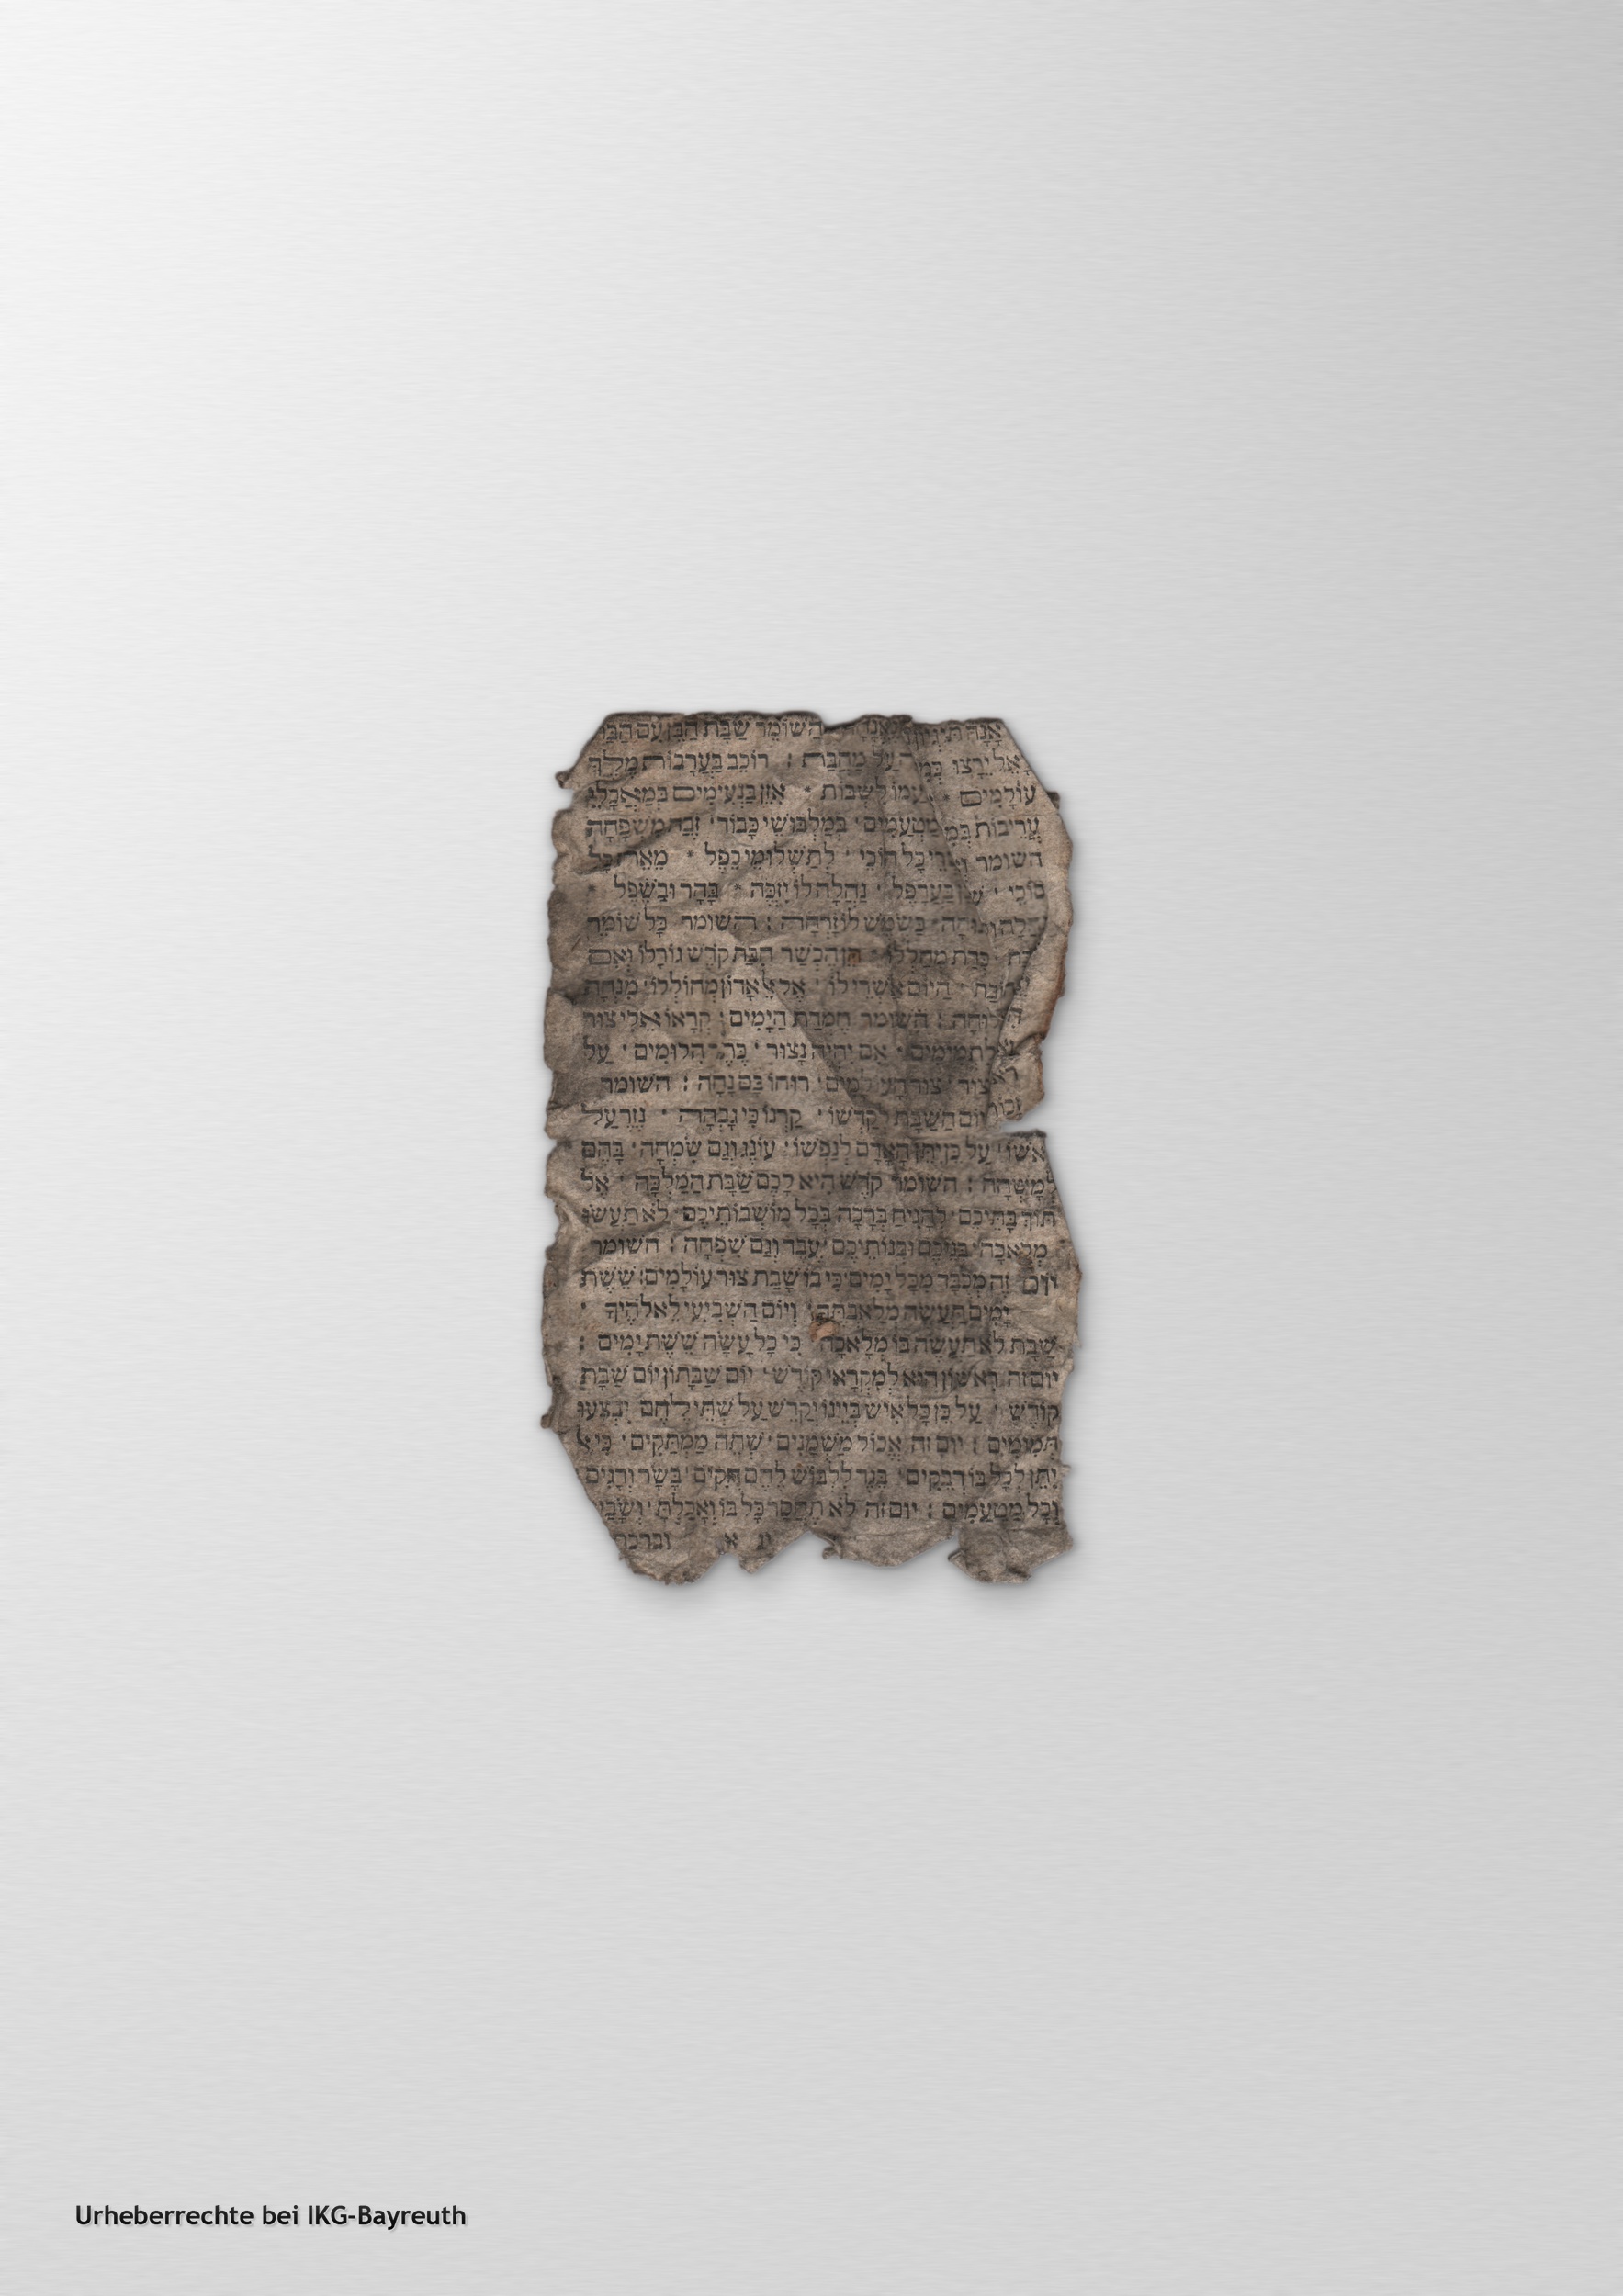 השומר שַׁבָּת הַבֵּן עִם הַבַּת
לָאֵל יֵרָצוּ עַל מַחֲבַת : רוֹכֵב בַּעֲרָבוֹת מֶלֶךְ
עוֹלָמִים * עַמּוֹ לִשְׁבּוֹת * אִזֵּן בַּנְּעִימִים בְּמַאֲכָלֵי
עֲרֵיבוֹת מַטְעַמִּים · בְּמַלְבּוּשֵׁי כָבוֹד · זֶבַח מִשְׁפָּחָה
השומר חוֹכֵי · לְתַשְׁלוּמֵי כֵפֶל * מֵאֵת כָּל
סוֹכֵי · בָּעֲרָפֶל · נַחֲלָה לוֹ יִזְכֶּה * בָּהָר וּבַשֶּׁפֶל *
כַּשֶּׁמֶשׁ לוֹ זָרְחָה : השומר כָּל שׁוֹמֵר
דָּת מֵחַלְּלוֹ · הֵן הֶכְשֵׁר חִבַּת קֹדֶשׁ גּוֹרָלוֹ וְאִם
חוֹבַת · הַיּוֹם אַשְׁרֵי לוֹ · אֶל אֵל אָדוֹן מְחוֹלְלוֹ · מִנְחָה
השומר חֶמְדַּת הַיָּמִים · קְרָאוֹ אֵלִי צוּר
לִתְמִימִים · אִם יִהְיֶה נָצוּר · כֶּתֶר הִלּוּמִים · עַל
צוּר הָעוֹלָמִים · רוּחוֹ בָּם נָחָה : השומר
זָכוֹר יוֹם הַשַּׁבָּת לְקַדְּשׁוֹ · קַרְנוֹ כִּי גָבְהָה · נֵזֶר עַל
רֹאשׁוֹ · עַל כֵּן יִתֵּן הָאָדָם לְנַפְשׁוֹ · עוֹנֶג וְגַם שִׂמְחָה · בָּהֶם
לְמָשְׁחָה : השומר קֹדֶשׁ הִיא לָכֶם שַׁבָּת הַמַּלְכָּה · אֶל
תּוֹךְ בָּתֵּיכֶם · לְהָנִיחַ בְּרָכָה בְּכָל מוֹשְׁבוֹתֵיכֶם · לֹא תַעֲשׂוּ
מְלָאכָה · בְּנֵיכֶם וּבְנוֹתֵיכֶם · עֶבֶד וְגַם שִׁפְחָה : השומר
יוֹם זֶה מְכֻבָּד מִכָּל יָמִים · כִּי בוֹ שָׁבַת צוּר עוֹלָמִים : שֵׁשֶׁת
יָמִים תַּעֲשֶׂה מְלַאכְתֶּךָ · וְיוֹם הַשְּׁבִיעִי לֵאלֹהֶיךָ ·
שַׁבָּת לֹא תַעֲשֶׂה בוֹ מְלָאכָה · כִּי כָל עָשָׂה שֵׁשֶׁת יָמִים :
יום זה רִאשׁוֹן הוּא לְמִקְרָאֵי קוֹדֶשׁ · יוֹם שַׁבָּתוֹן יוֹם שַׁבָּת
קוֹדֶשׁ · עַל כֵּן כָּל אִישׁ בְּיֵינוֹ יְקַדֵּשׁ עַל שְׁתֵּי לֶחֶם יִבְצְעוּ
תְמִימִים : יום זה אֱכוֹל מַשְׁמַנִּים · שְׁתֵה מַמְתַּקִּים · כִּי אֵל
יִתֵּן לְכָל בּוֹ דְבֵקִים · בֶּגֶד לִלְבּוֹשׁ לֶחֶם חֻקִּים · בָּשָׂר וְדָגִים
וְכָל מַטְעַמִּים : יום זה לֹא תֶחְסַר כָּל בּוֹ וְאָכַלְתָּ · וְשָׂבָעְתָּ
וּבֵרַכְתָּ
Urheberrechte bei IKG-Bayreuth